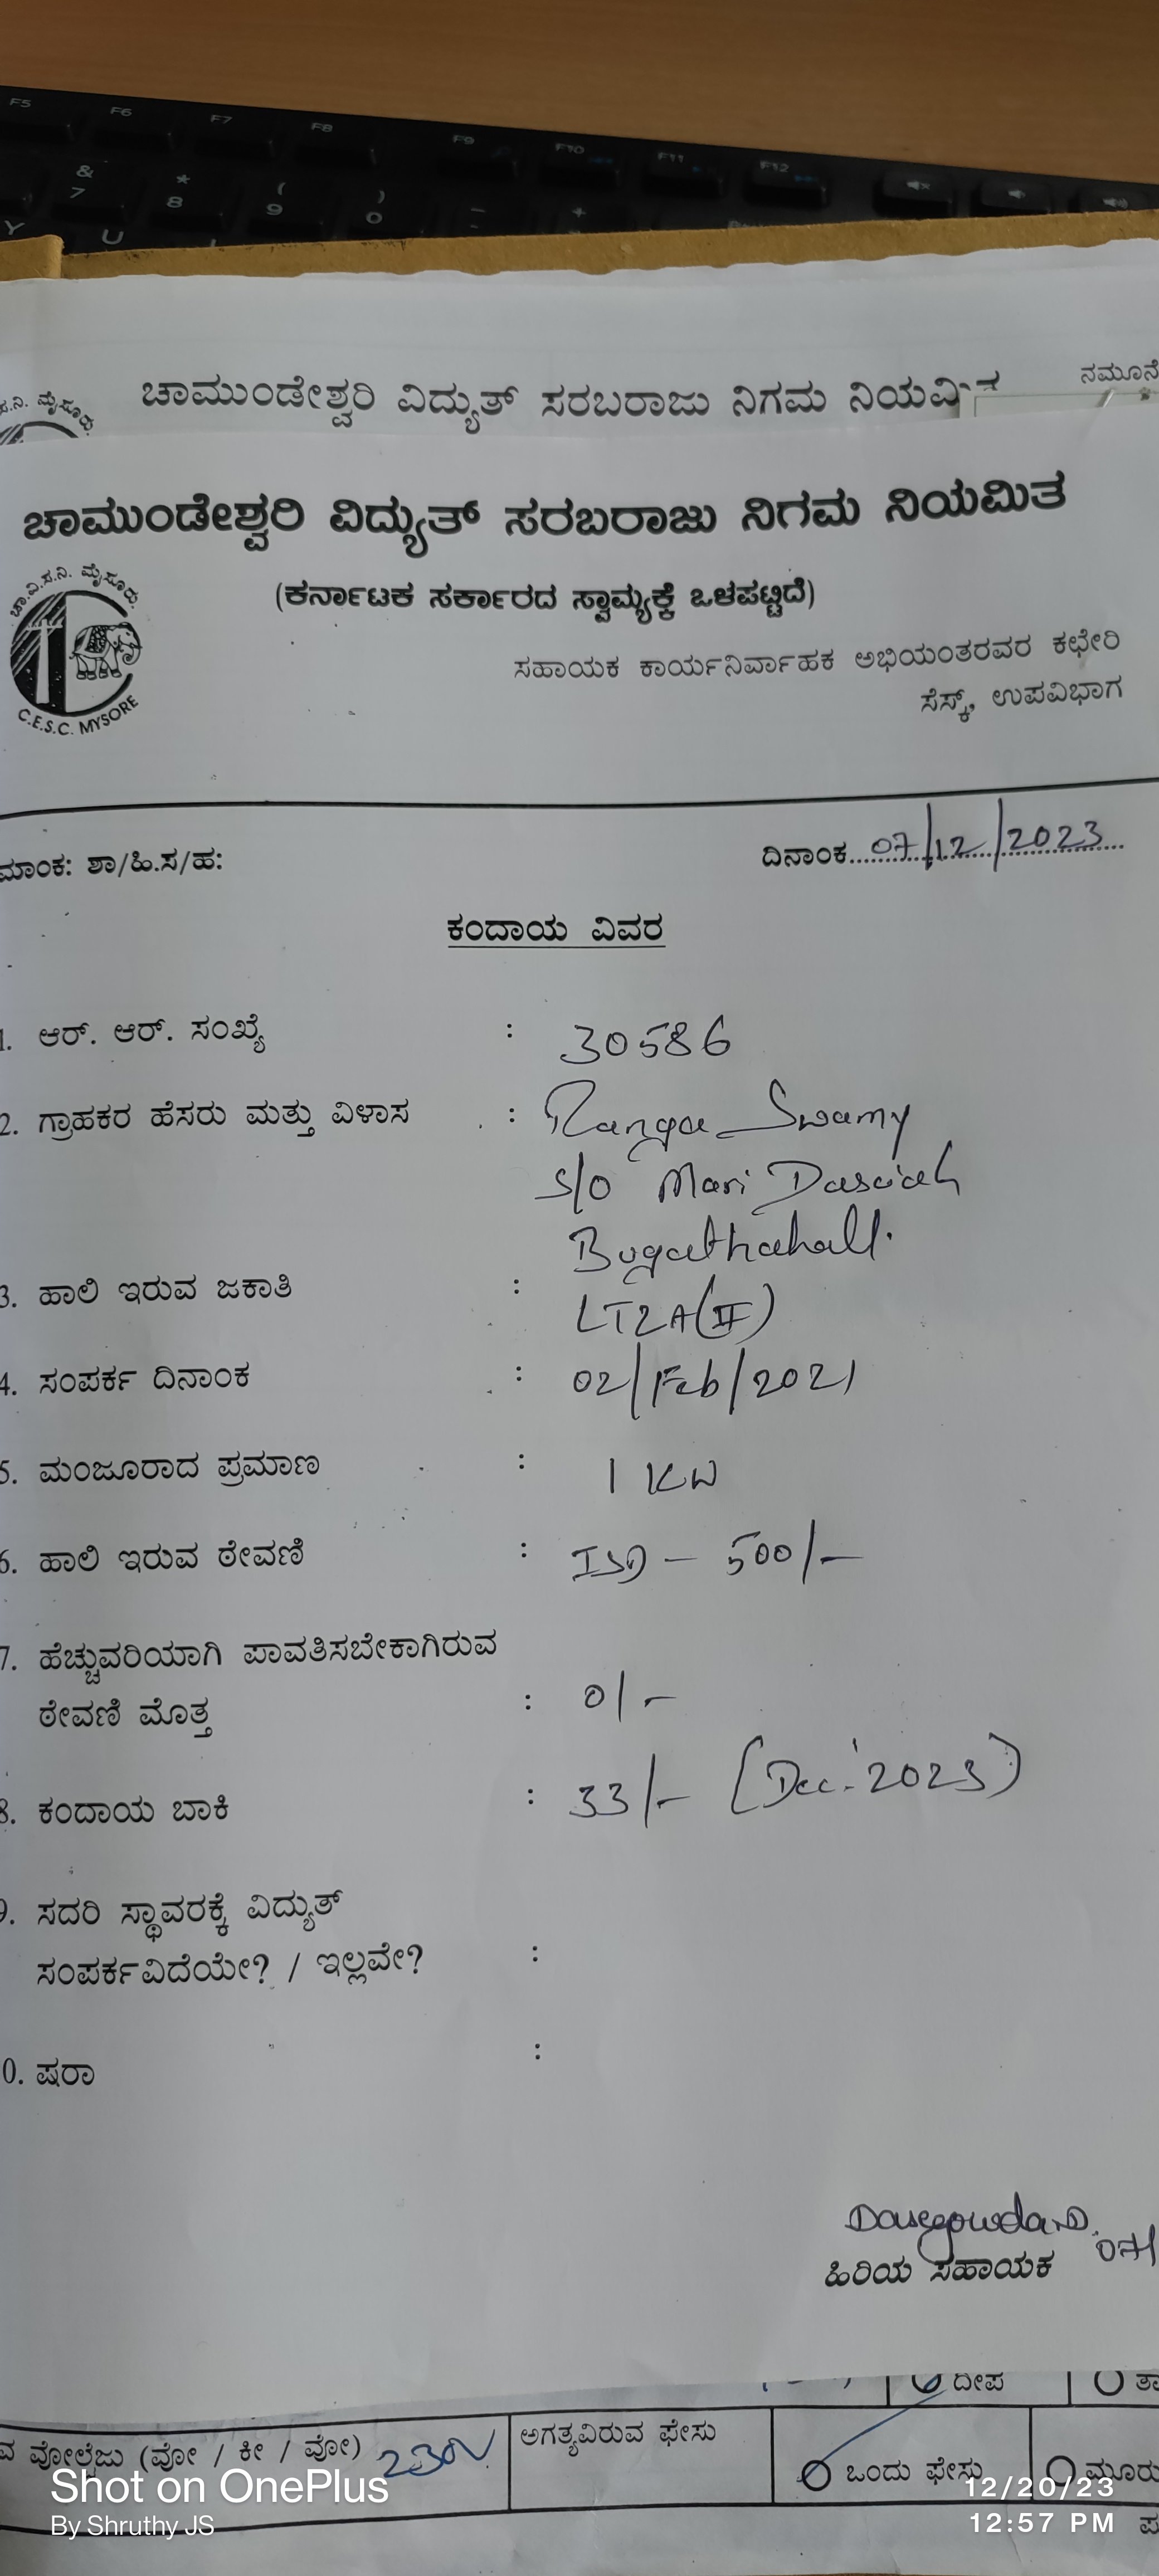 F5 F6 F7 F8 F9 F10 F11 F12
& 7 * 8 ( 9 ) 0 - +
Y U
ನಮೂನೆ
ಸ.ನಿ. ಮೈಸೂರು.
ಚಾಮುಂಡೇಶ್ವರಿ ವಿದ್ಯುತ್ ಸರಬರಾಜು ನಿಗಮ
ಚಾಮುಂಡೇಶ್ವರಿ ವಿದ್ಯುತ್ ಸರಬರಾಜು ನಿಗಮ ನಿಯಮಿತ
ಚಾ.ವಿ.ಸ.ನಿ. ಮೈಸೂರು.
C.E.S.C. MYSORE
(ಕರ್ನಾಟಕ ಸರ್ಕಾರದ ಸ್ವಾಮ್ಯಕ್ಕೆ ಒಳಪಟ್ಟಿದೆ)
ಸಹಾಯಕ ಕಾರ್ಯನಿರ್ವಾಹಕ ಅಭಿಯಂತರವರ ಕಛೇರಿ
ಸೆಸ್ಕ್, ಉಪವಿಭಾಗ
ಮಾಂಕ: ಶಾ/ಹಿ.ಸ/ಹ: ದಿನಾಂಕ 07/12/2023
ಕಂದಾಯ ವಿವರ
1. ಆರ್. ಆರ್. ಸಂಖ್ಯೆ : 30586
2. ಗ್ರಾಹಕರ ಹೆಸರು ಮತ್ತು ವಿಳಾಸ : Ranga Swamy
S/O Mari Dasaiah
Bugathahall.
3. ಹಾಲಿ ಇರುವ ಜಕಾತಿ : LT2A(II)
4. ಸಂಪರ್ಕ ದಿನಾಂಕ : 02/Feb/2021
5. ಮಂಜೂರಾದ ಪ್ರಮಾಣ : 1 KW
6. ಹಾಲಿ ಇರುವ ಠೇವಣಿ : ISD - 500/-
7. ಹೆಚ್ಚುವರಿಯಾಗಿ ಪಾವತಿಸಬೇಕಾಗಿರುವ
ಠೇವಣಿ ಮೊತ್ತ : 0/-
8. ಕಂದಾಯ ಬಾಕಿ : 33/- (Dec-'2023)
9. ಸದರಿ ಸ್ಥಾವರಕ್ಕೆ ವಿದ್ಯುತ್
ಸಂಪರ್ಕವಿದೆಯೇ? / ಇಲ್ಲವೇ? :
0. ಷರಾ :
Dasegowda.D. 07/
ಹಿರಿಯ ಸಹಾಯಕ
ದೀಪ
ವ ವೋಲ್ಟೇಜು (ವೋ / ಕೀ / ವೋ) 230V ಅಗತ್ಯವಿರುವ ಫೇಸು ಒಂದು ಫೇಸು ಮೂರು
Shot on OnePlus
By Shruthy JS
12/20/23
12:57 PM